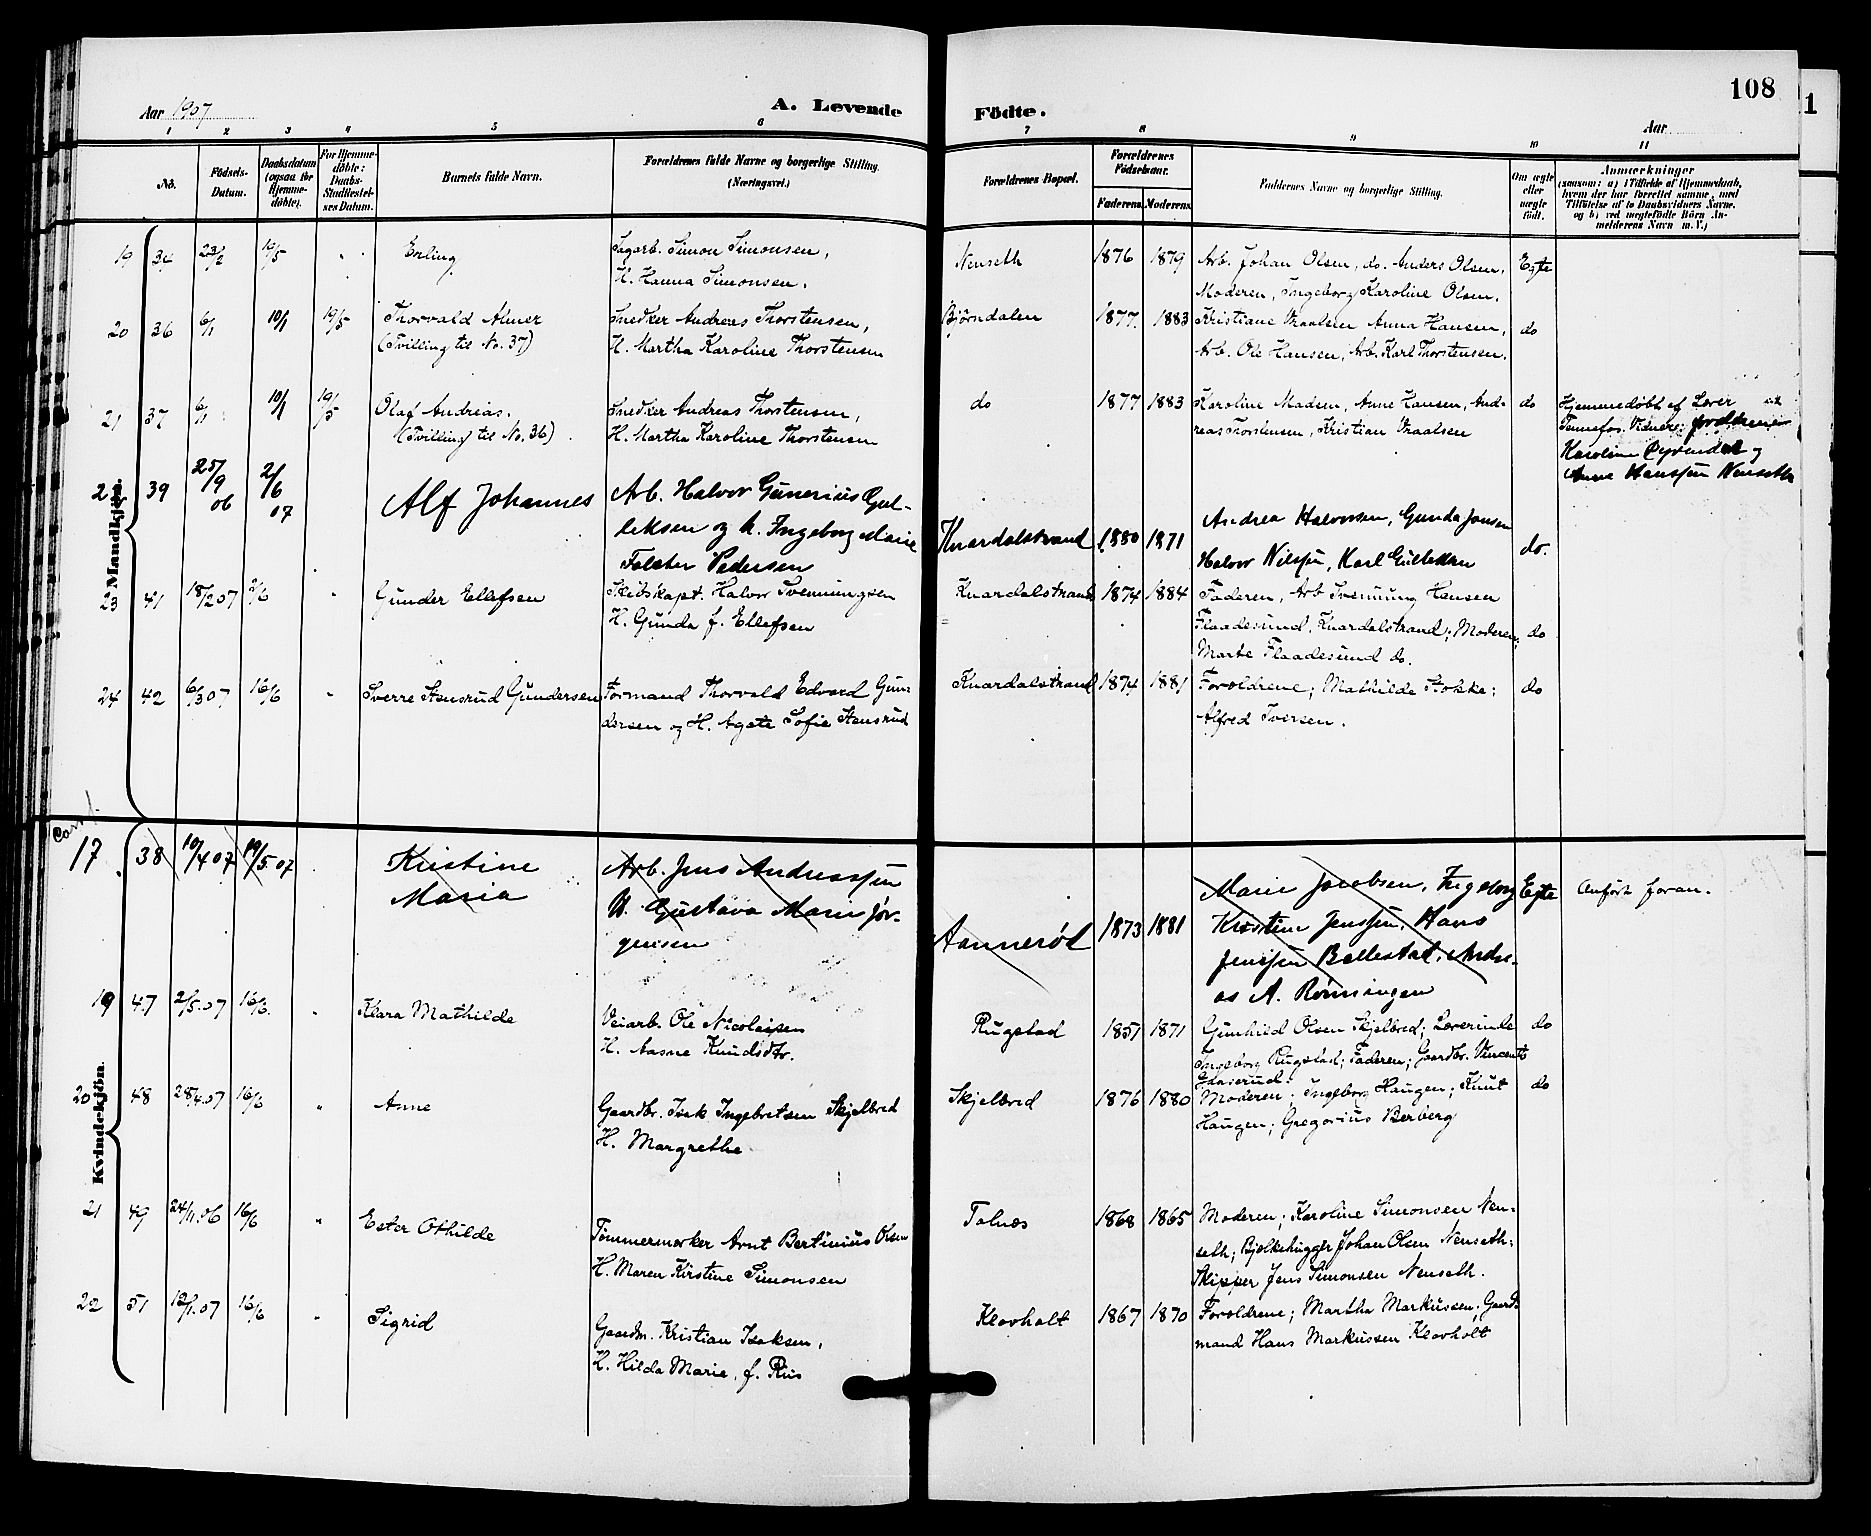 108
1
Aar 1907
A. Levende
Födte.
Aar
1 2 3 4 5 6 7 8 9 10 11
No.
Födsels-
Datum.
Daabsdatum
(ogsaa for
Hjemme-
døbte).
For Hjemme-
döbte:
Daabs-
Stadfæstel-
ses Datum.
Barnets fulde Navn.
Forældrenes fulde Navne og borgerlige Stilling.
(Næringsvei.)
Forældrenes Bopæl.
Forældrenes
Födselsaar.
Faderens.
Moderens.
Faddernes Navne og borgerlige Stilling.
Om ægte
eller
uægte
födt.
Anmærkninger
(saasom: a) i Tilfælde af Hjemmedaab,
hvem der har forrettet samme, med
Tilföielse af to Daabsvidners Navne,
og b) ved uægtefödte Börn An-
melderens Navn m. V.)
Mandkjön.
19 34 23/2 19/5 " Erling
Sagarb. Simon Simonsen,
H. Hanna Simonsen.
Nenseth 1876 1879
Arb. Johan Olsen, do. Anders Olsen,
Moderen, Ingeborg Karoline Olsen.
Egte
20 36 6/1 10/1 19/5 Thorvald Almer
(Tvilling til No. 37)
Snedker Andreas Thorstensen,
H. Martha Karoline Thorstensen
Bjørndalen 1877. 1883
Kristiane Traalsen Anna Hansen,
Arb. Ole Hansen, Arb. Karl Thorstensen.
do
21 37 6/1 10/1 19/5 Olaf Andrias.
(Tvilling til No. 36)
Snedker Andreas Thorstensen,
H. Martha Karoline Thorstensen
do 1877 1883
Karoline Madsen, Anne Hansen, And-
reas Thorstensen, Kristian Traalsen
do
Hjemmedøbt af Lærer
Tennefos. Vidner:
Karoline og
Anna Hanssen Nenseth
22 39 25/9 06 2/6 07 Alf Johannes
Arb. Halvor Gunerius Gul-
leksen og h. Ingeborg Marie
Falster Pedersen
Knardalstrand 1880 1871
Andrea Halvorsen, Gunda Jonsen
Halvor Nilssen, Karl Gulleksen
do.
23 41 18/2 07 2/6 " Gunder Ellefsen
Skibskapt. Halvor Svenningsen
H. Gunda f. Ellefsen
Knardalstrand 1874 1884
Faderen, Arb Svennung Hansen
Flaadesund, Knardalstrand; Moderen;
Marte Flaadesund do.
do
24 42 6/3 07 16/6 " Sverre Stensrud Gundersen
Formand Thorvald Edvard Gun-
dersen og H. Agate Sofie Stensrud
Knardalstrand 1874 1881
Foreldrene; Mathilde Stokke;
Alfred Iversen.
do
Kvindekjön.
17 38 10/4 07 19/5 07 Kristine
Maria
Arb. Jens Andreassen
H. Gustava Marie Jør-
gensen
Aannerød 1873 1881
Marie Jacobsen, Ingeborg
Kristine Jenssen, Hans
Jenssen Ballestad, Andre-
as A. Rønningen
Egte Anført foran.
19 47 2/5.07 16/6. " Klara Mathilde
Veiarb. Ole Nicolaisen
H. Aasne Knudsdtr.
Rugstad 1851 1871
Gunhild Olsen Skjelbred; Lærerinde
Ingeborg Rugstad; Faderen; Gaardbr. Vincents
Graserud.
do
20 48 28/4.07 16/6 " Anne
Gaardbr. Isak Ingebretsen Skjelbred
H. Margrethe
Skjelbred 1876 1880
Moderen; Ingeborg Haugen; Knut
Haugen; Gregorius Berberg
do
21 49 24/11.06 16/6 " Ester Othilde
Tømmermerker Arnt Bertinius Olsen
H. Maren Kirstine Simonsen
Tolnæs 1868 1865
Moderen; Karoline Simonsen Nen-
seth; Bjelkehugger Johan Olsen Nenseth;
Skipper Jens Simonsen Nenseth.
22 51 12/1.07 16/6 " Sigrid
Gaardm. Kristian Isaksen,
H. Hilda Marie, f. Riis
Klovholt 1867 1870
Foreldrene; Martha Markussen; Gaard-
mand Hans Markussen Klovholt